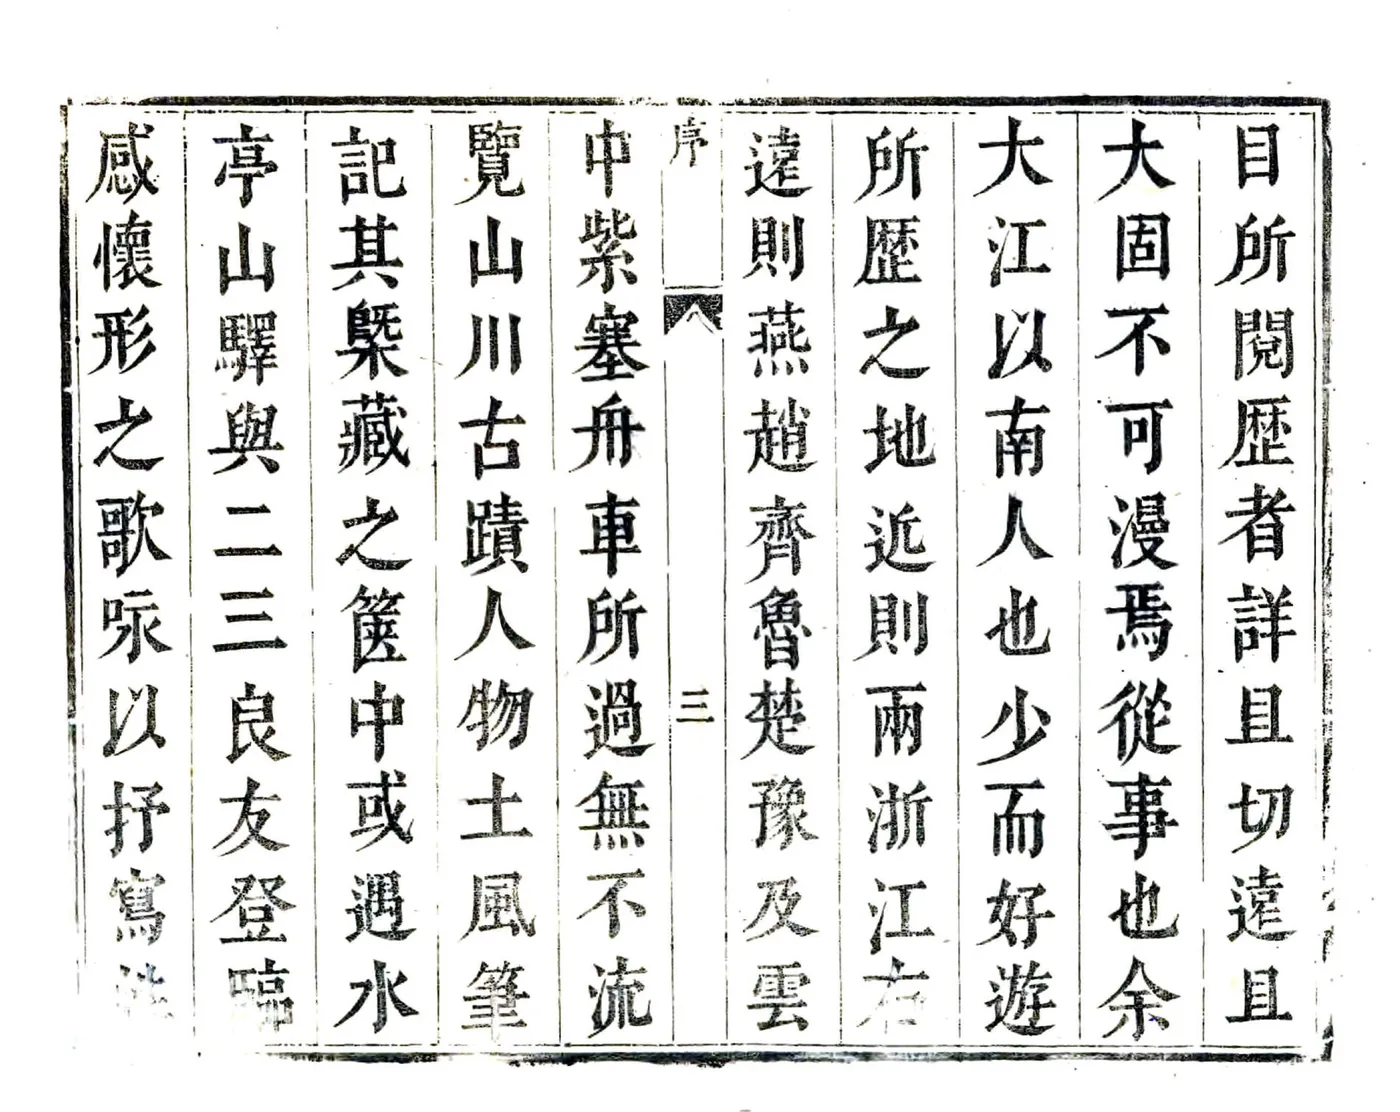 目所閱歴者詳且切遠且
大固不可漫焉從事也余
大江以南人也少而好遊
所歴之地近則兩浙江右
遠則燕趙齊魯楚豫及雲
序
三
中紫塞舟車所過無不流
覽山川古蹟人物土風筆
記其槩藏之篋中或遇水
亭山驛與二三良友登臨
感懷形之歌咏以抒寫